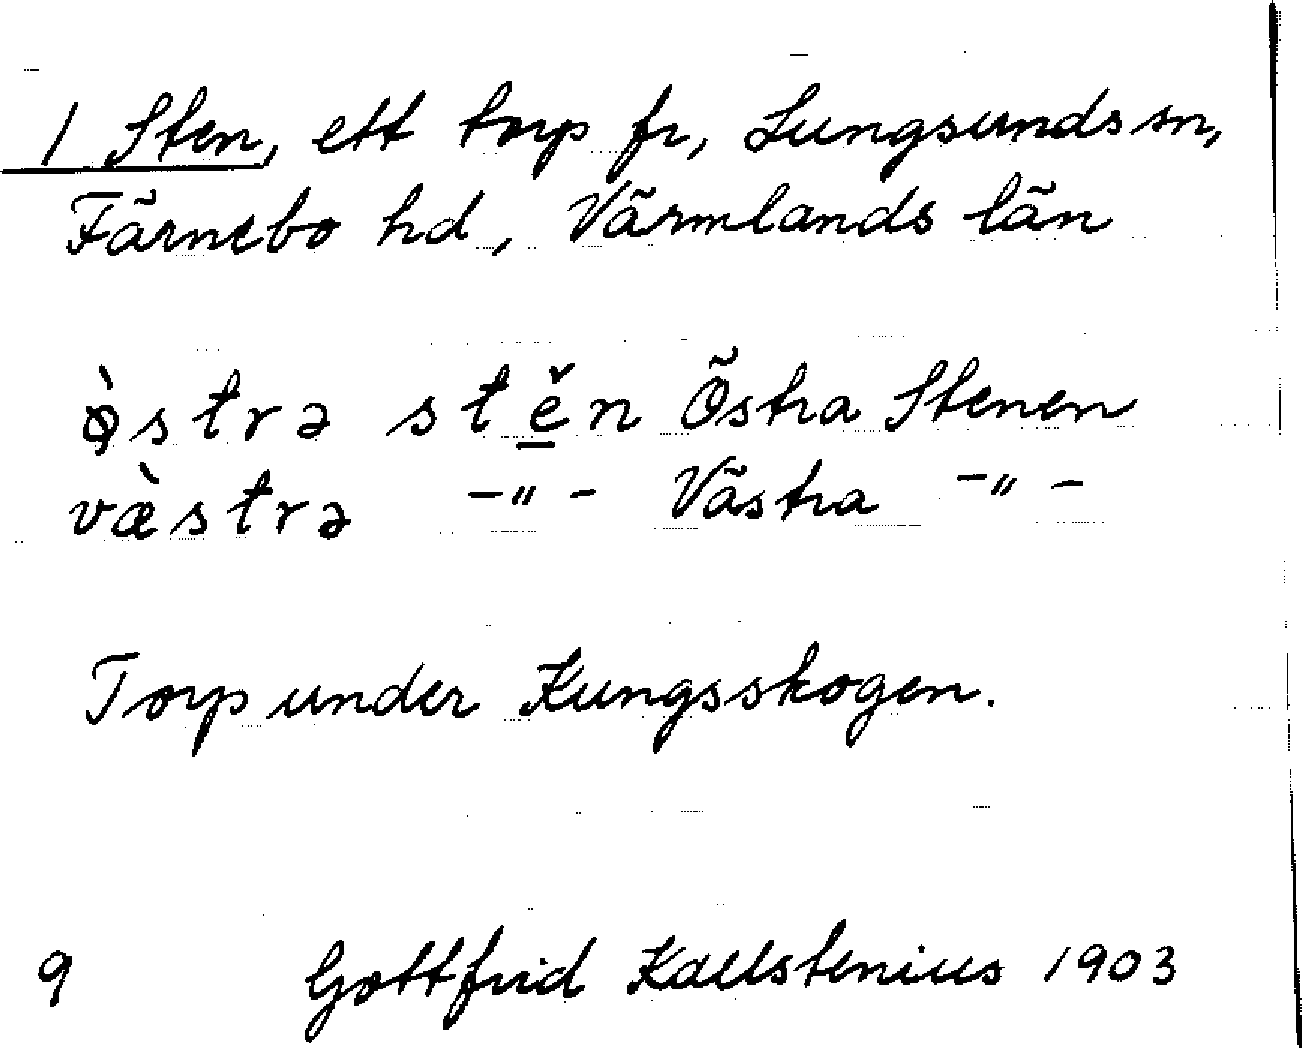 1 Sten, ett torp fr, Lungsunds sn,
Färnebo hd, Värmlands län
ø̀strə stě̲n Östra Stenen
væ̀strə -"- Västra -"-
Torp under Kungsskogen.
9 Gottfrid Kallstenius 1903